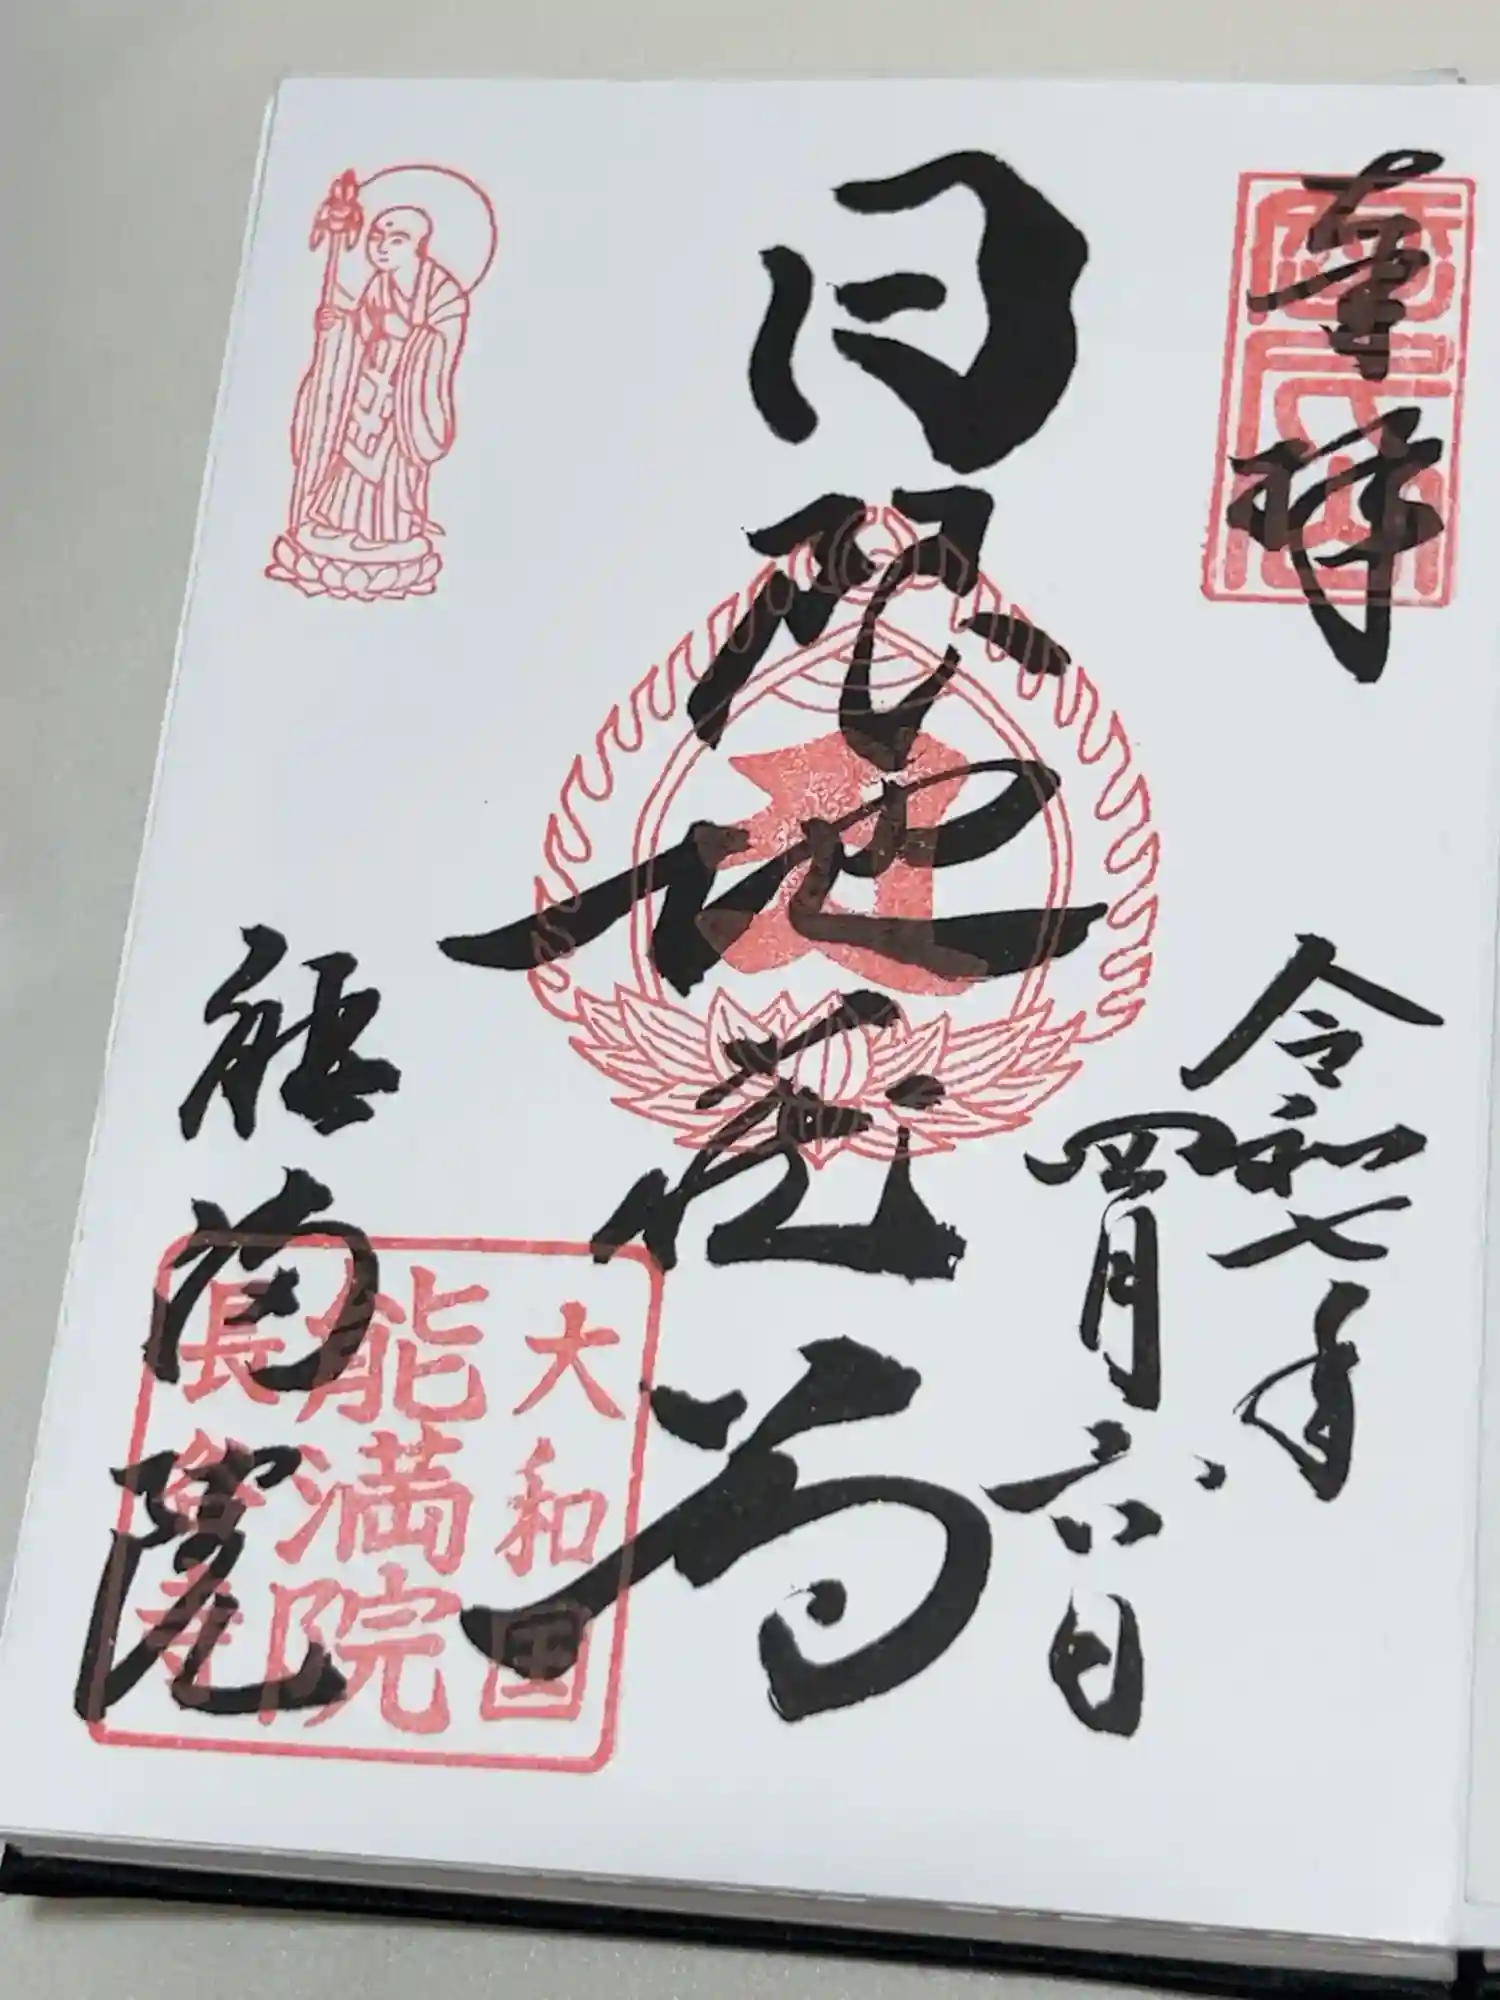 奉拝
令和七年
四月六日
日限地蔵尊
能満院
大和国
能満院
長谷寺